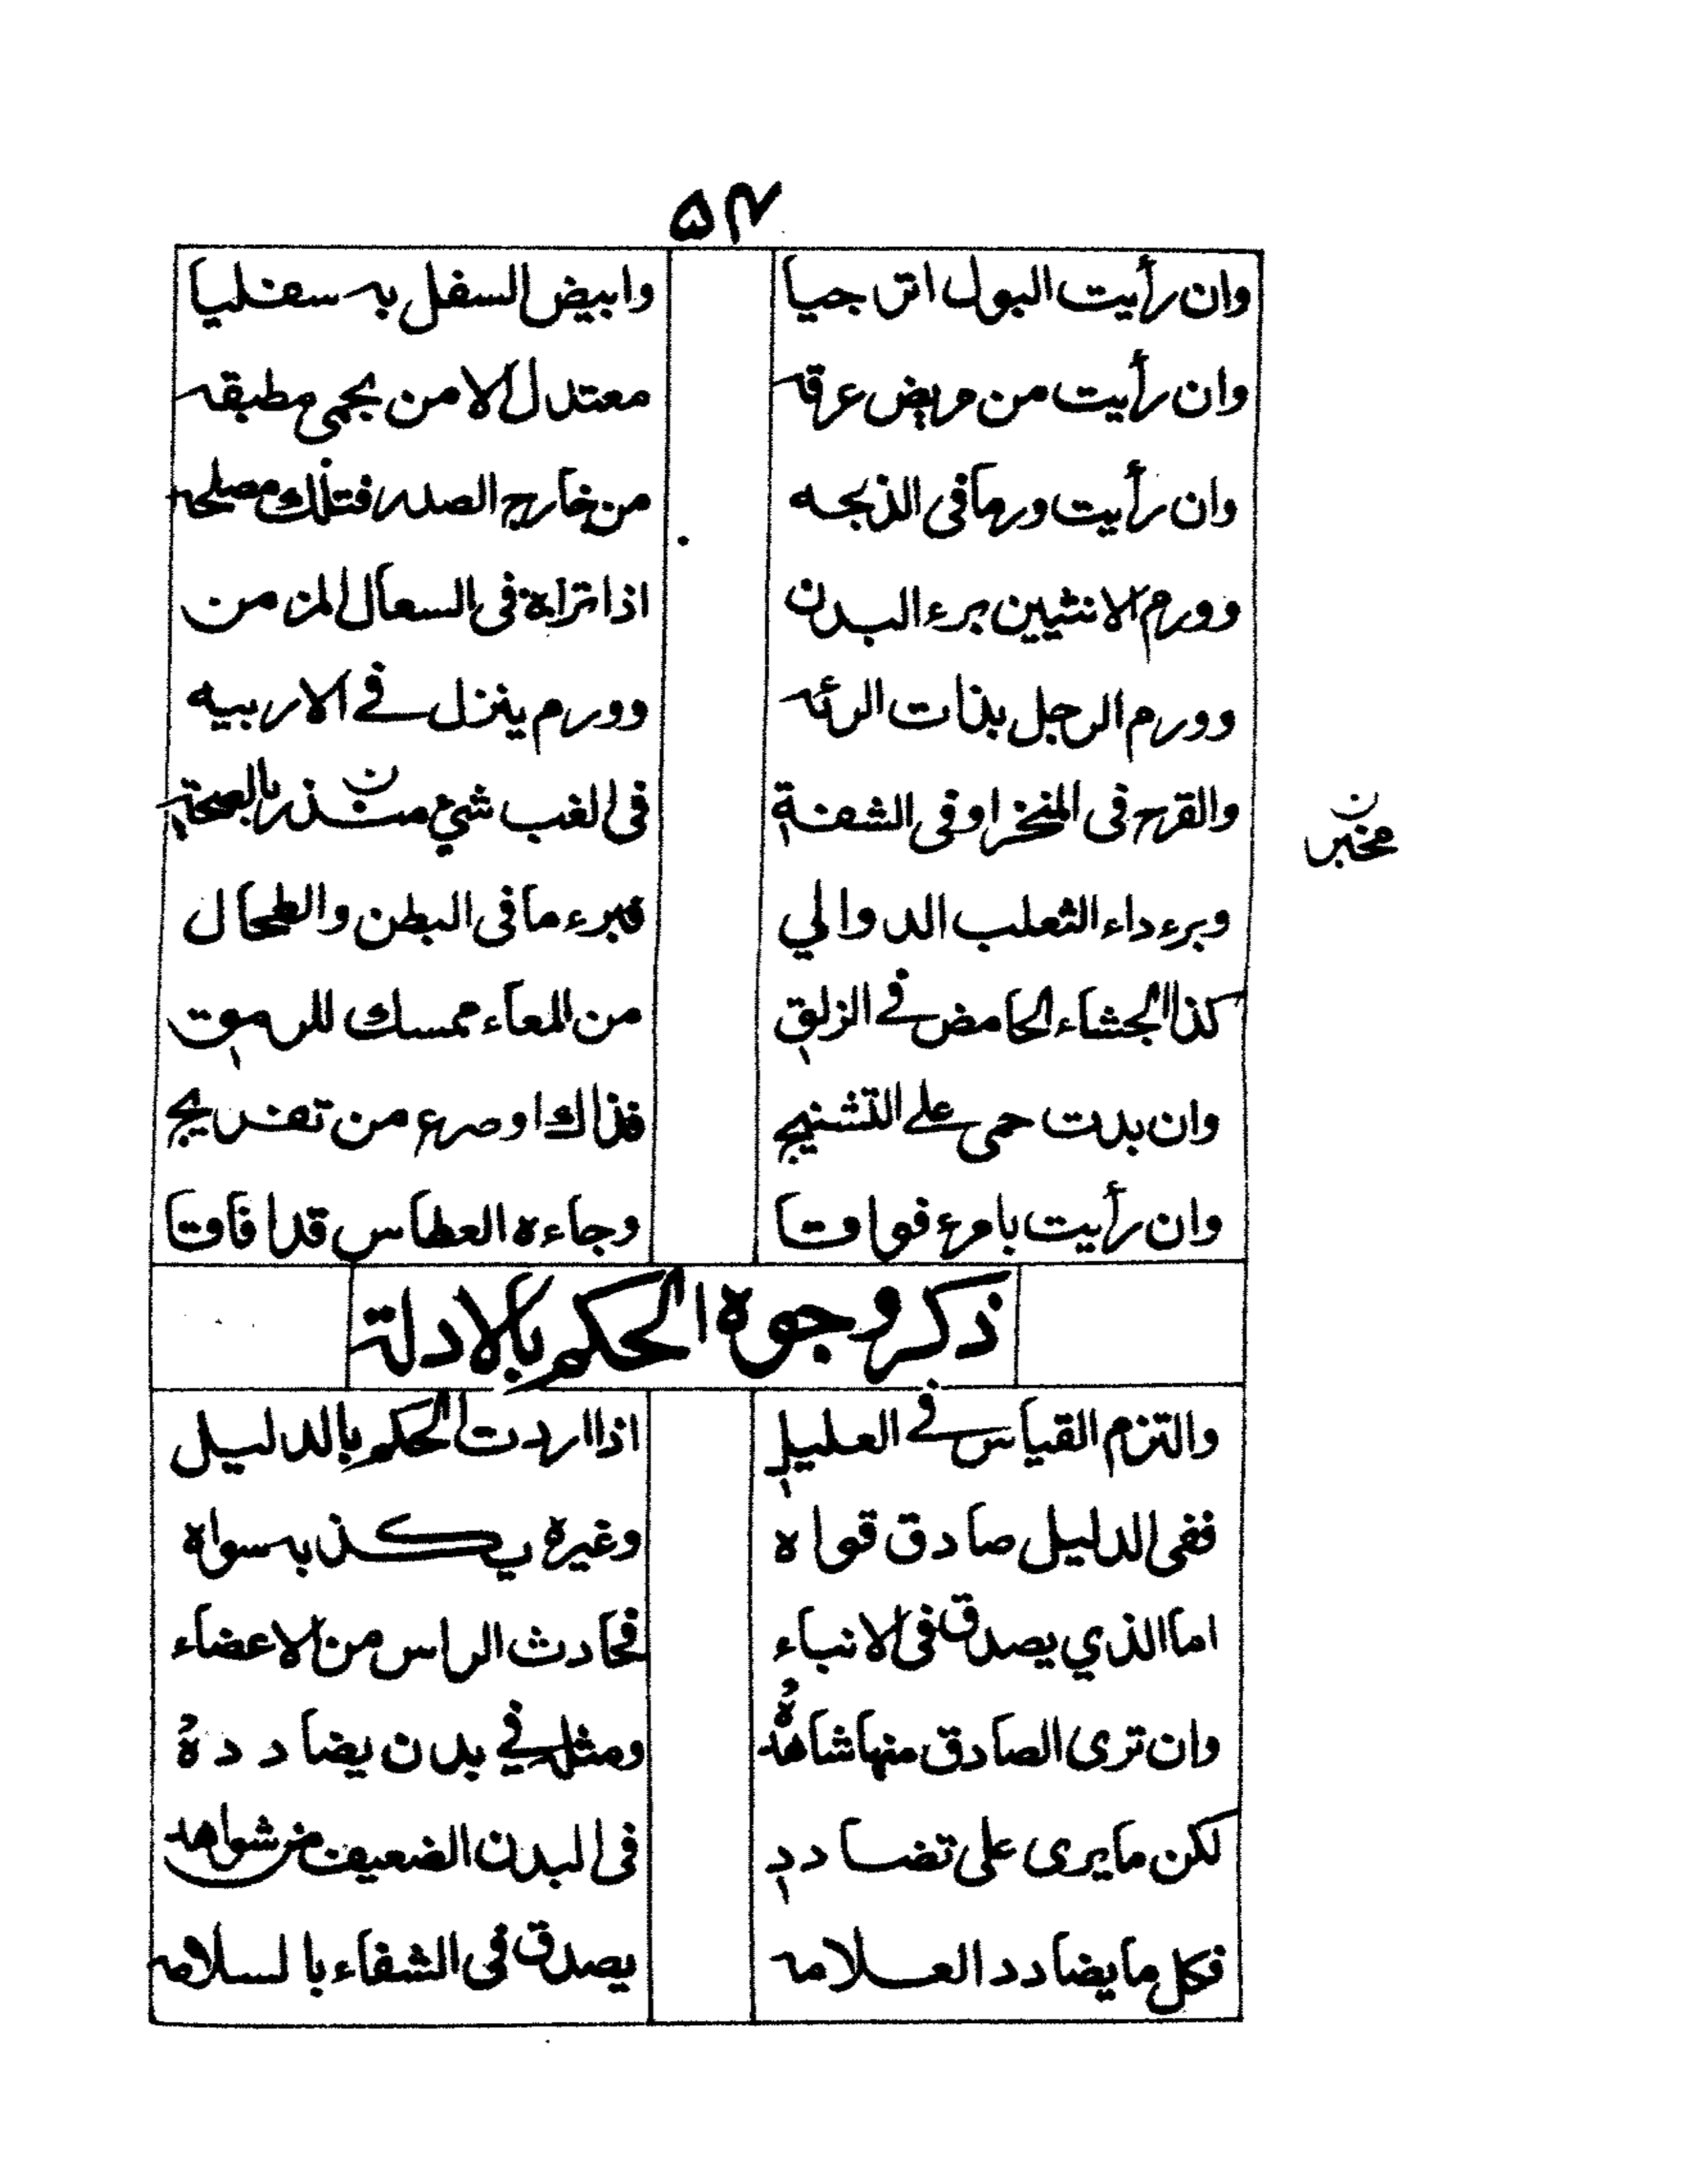 ۵۴
وان رأيت البول اترجيا وابيض السفل به سفليا
وان رأيت من مريض عرقه معتدل الامن بحمى مطبقه
وان رأيت ورما فى الذبحه من خارج الصدر فتلك مصلحه
وورم الانثيين برء البدن اذا تراه فى السعال المزمن
وورم الرجل بذات الرئه وورم ينزل فے الاربيه
والقرح فى المنخر او فى الشفة فى الغب شئ منذر بالصحة
ن
مخبر ن
وبرء داء الثعلب الدوالي فبرء ما فى البطن والطحال
كذا الجشاء الحامض فے الزلق من المعاء ممسك للرموق
وان بدت حمى علے التشنيج فذاك او صرع من تفريج
وان رأيت بامرء فواقا وجاءه العطاس قد افاقا
ذكر وجوه الحكم بالادلة
والتزم القياس فے العليل اذا اردت الحكم بالدليل
ففى الدليل صادق قواه وغيره يكذبه سواه
اما الذي يصدق فى الانباء فحادث الراس من الاعضاء
وان ترى الصادق منها شاهدهُ ومثله فے بدن يضاددهُ
لكن ما يرى على تضادد فى البدن الضعيف من شواهد
فكل ما يضادد العلامه يصدق فى الشفاء بالسلامه